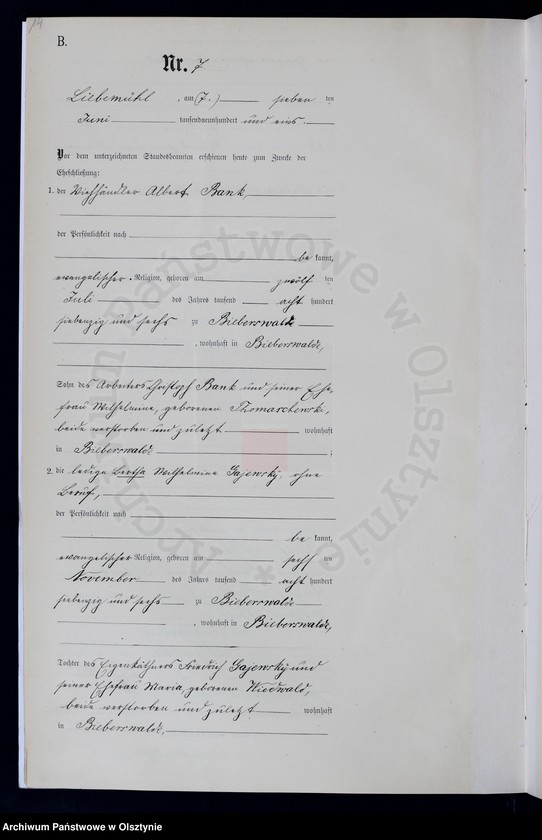 14
B.
Nr. 7
Liebemühl, am (7.) sieben ten
Juni tausendneunhundert und eins.
Vor dem unterzeichneten Standesbeamten erschienen heute zum Zwecke der
Eheschließung:
1. der Viehhändler Albert Bank,
der Persönlichkeit nach
be kannt,
evangelischer Religion, geboren am zwölf ten
Juli des Jahres tausend acht hundert
siebenzig und sechs zu Bieberswalde
, wohnhaft in Bieberswalde,
Sohn des Arbeiters Christoph Bank und seiner Ehe-
frau Wilhelmine, geborenen
beide verstorben und zuletzt wohnhaft
in Bieberswalde ;
2. die ledige Bertha Wilhelmine Gajewsky, ohne
Beruf,
der Persönlichkeit nach
be kannt,
evangelischer Religion, geboren am sechs ten
November des Jahres tausend acht hundert
siebenzig und sechs zu Bieberswalde
, wohnhaft in Bieberswalde,
Tochter des Eigenkäthners Friedrich Gajewsky und
seiner Ehefrau Maria, geborenen Wiedwald,
beide verstorben und zuletzt wohnhaft
in Bieberswalde,
Archiwum Państwowe w Olsztynie
Archiwum Państwowe w Olsztynie